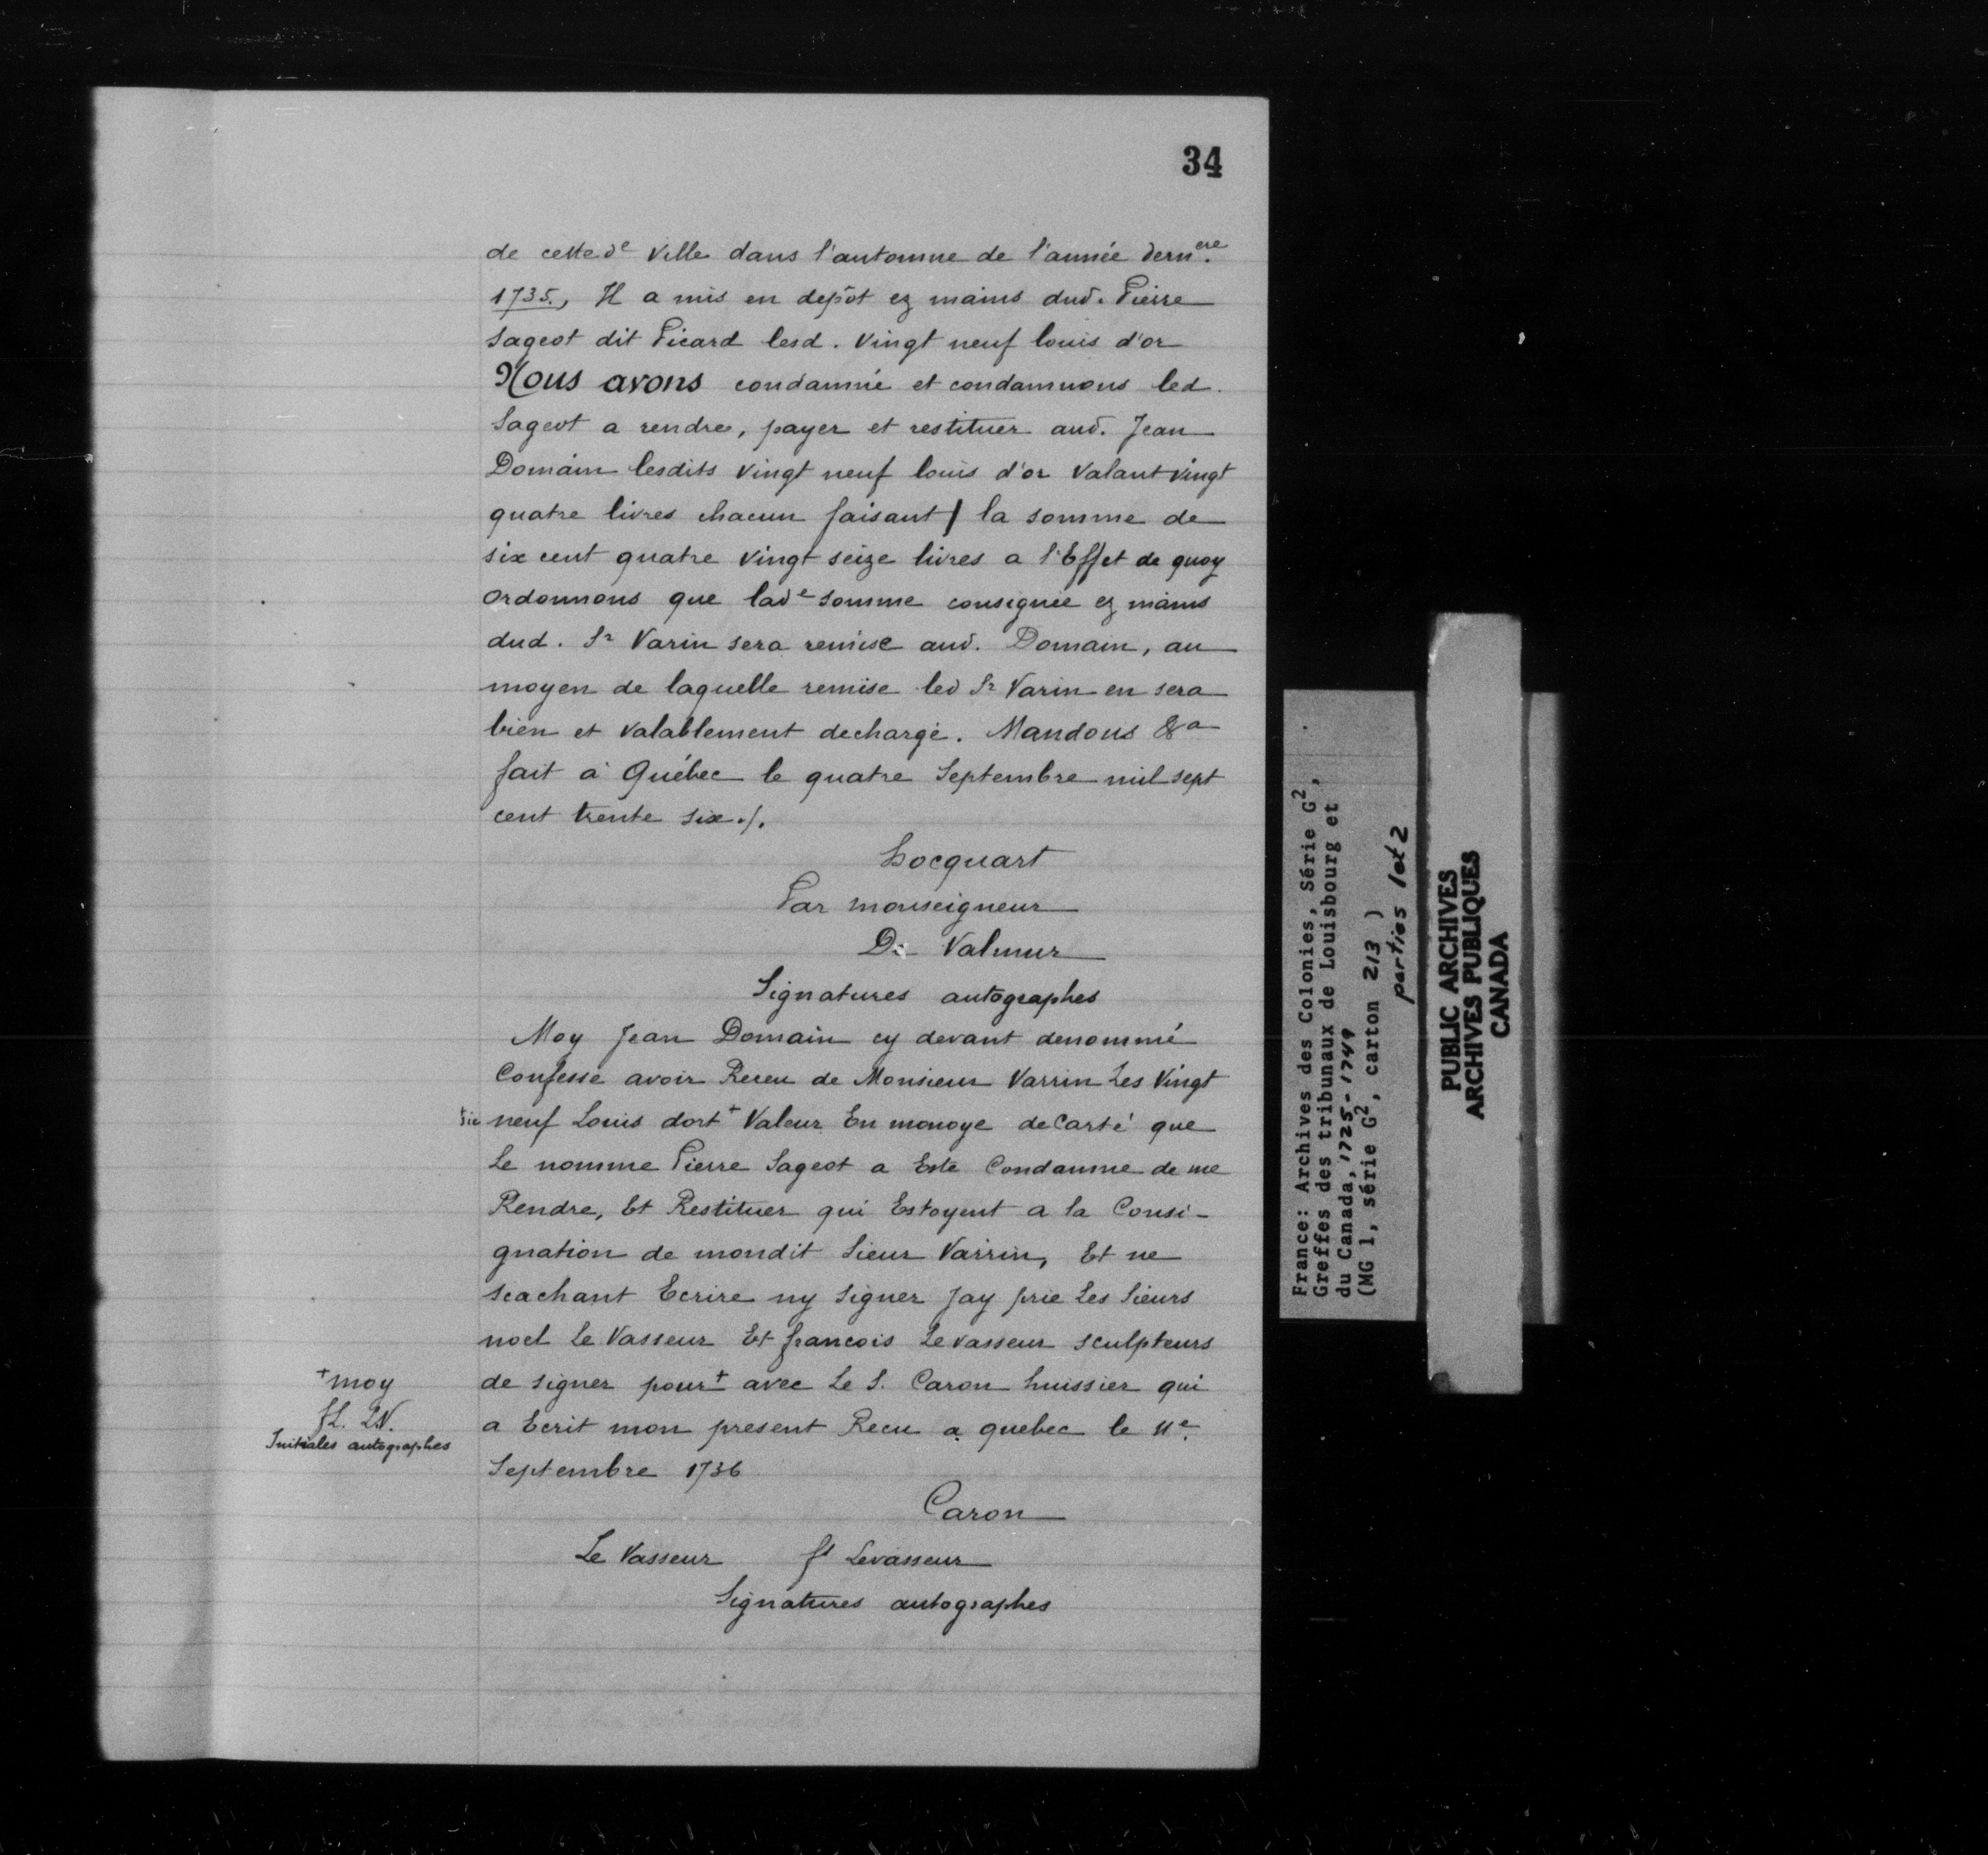 34
de cette de Ville dans l'automne de l'année dernere.
1735., Il a mis en depôt ez mains dud. Pierre
Sageot dit Picard lesd. Vingt neuf louis d'or
Nous avons condamné et condamnons led.
Sageot a rendre, payer et restituer aud. Jean
Domain lesdits Vingt neuf louis d'or Valant Vingt
quatre livres chacun faisant la somme de
six cent quatre Vingt seize livres a l'Effet de quoy
Ordonnons que lade somme consignée ez mains
dud. Sr Varin sera remise aud. Domain, au
moyen de laquelle remise led Sr Varin en sera
bien et Valablement dechargé. Mandons &a
fait à Québec le quatre Septembre mil sept
cent trente six ./.
hocquart
Par monseigneur
De Valmur
Signatures autographes
Moy Jean Domain cy devant denommé
Confesse avoir Receu de Monsieur Varrin Les Vingt
sic neuf Louis dort + Valeur En monoye de Carte que
Le nomme Pierre Sageot a Este Condamne de me
Rendre, Et Restituer qui Estoyent a la Consi-
gnation de mondit Sieur Varrin, Et ne
scachant Ecrire ny Signer Jay prie Les Sieurs
noel Le Vasseur Et francois Levasseur sculpteurs
de signer pour + avec Le S. Caron huissier qui
a Ecrit mon present Recu a quebec le 11e.
Septembre 1736
+ moy
fL. LV.
Initiales autographes
Caron
Le Vasseur fs Levasseur
Signatures autographes
France: Archives des Colonies, Série G2,
Greffes des tribunaux de Louisbourg et
du Canada, 1725-1749
(MG 1, série G2, carton 213 )
parties 1 et 2
PUBLIC ARCHIVES
ARCHIVES PUBLIQUES
CANADA